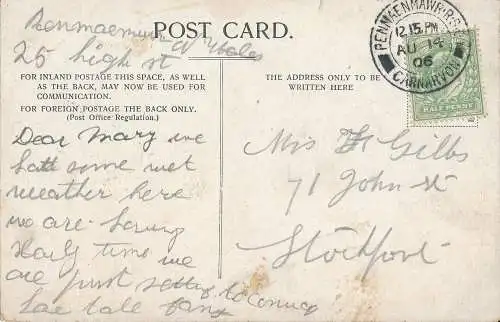 POST CARD.
Penmaenmawr
N Wales
25 high st
FOR INLAND POSTAGE THIS SPACE, AS WELL
AS THE BACK, MAY NOW BE USED FOR
COMMUNICATION.
FOR FOREIGN POSTAGE THE BACK ONLY.
(Post Office Regulation.)
Dear Mary we
hatt some wet
weather here
we are
time we
are just
THE ADDRESS ONLY TO BE
WRITTEN HERE
PENMAENMAWR R.S.O.
12 15 PM
AU 14
06
CARNARVON
HALF PENNY
Mis Gibbs
71 John st
Stockport